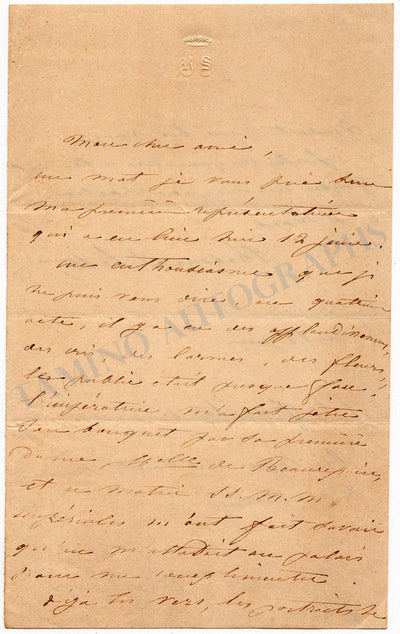 R S
Mon cher ami,
un mot je vous prie sur
ma première représentation
qui a eu lieu hier 12 juin.
un enthousiasme que je
ne puis vous dire au quatrième
acte, il y a eu des applaudissemens,
des cris des larmes, des fleurs,
le public était presque fou!
l'impératrice m'a fait jeter
son bouquet par sa première
dame, Melle de Beaurepaire,
et ce matin SS. M.M.
impériales m'ont fait savoir
qu'on m'attendait au palais
pour me complimenter.
déjà les vers, les portraits de
TAMINO AUTOGRAPHS